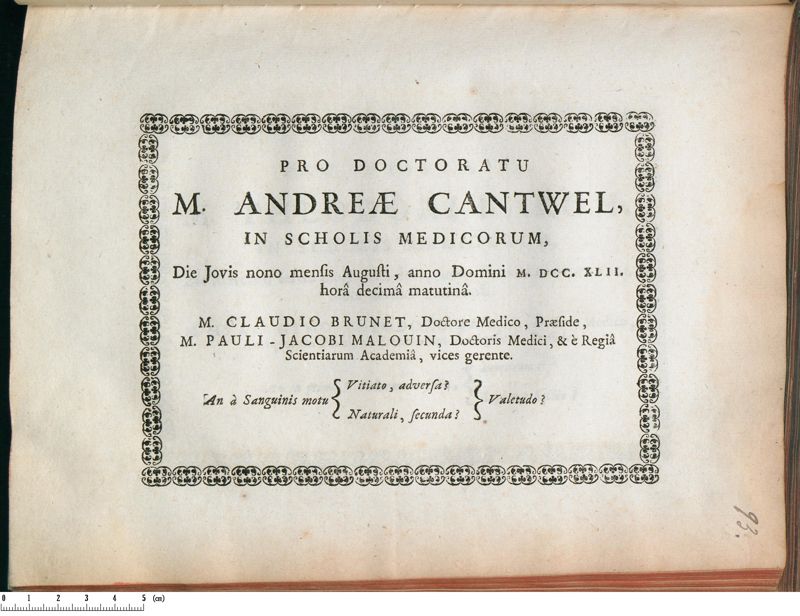 PRO DOCTORATU
M. ANDREÆ CANTWEL,
IN SCHOLIS MEDICORUM,
Die Jovis nono mensis Augusti, anno Domini M. DCC. XLII.
horâ decimâ matutinâ.
M. CLAUDIO BRUNET, Doctore Medico, Præside,
M. PAULI-JACOBI MALOUIN, Doctoris Medici, & è Regiâ
Scientiarum Academiâ, vices gerente.
An à Sanguinis motu { Vitiato, adversa? } Valetudo?
Naturali, secunda?
93.
0 1 2 3 4 5 (cm)